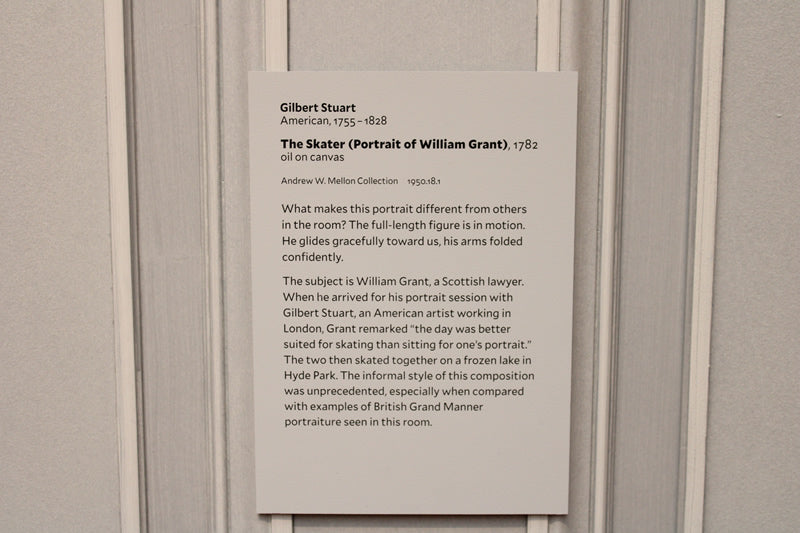 Gilbert Stuart
American, 1755–1828
The Skater (Portrait of William Grant), 1782
oil on canvas
Andrew W. Mellon Collection 1950.18.1
What makes this portrait different from others
in the room? The full-length figure is in motion.
He glides gracefully toward us, his arms folded
confidently.
The subject is William Grant, a Scottish lawyer.
When he arrived for his portrait session with
Gilbert Stuart, an American artist working in
London, Grant remarked “the day was better
suited for skating than sitting for one’s portrait.”
The two then skated together on a frozen lake in
Hyde Park. The informal style of this composition
was unprecedented, especially when compared
with examples of British Grand Manner
portraiture seen in this room.